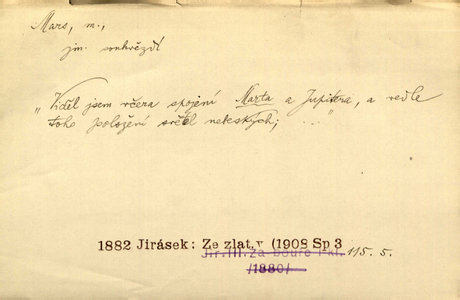 Mars, m.,
jm. souhvězdí
„Viděl jsem včera spojení Marta a Jupitera, a vedle
toho položení světel nebeských; ..."
1882 Jirásek: Ze zlat. v (1908 Sp 3
Jir. III. Za bouře I kl. 115. 5.
/1880/